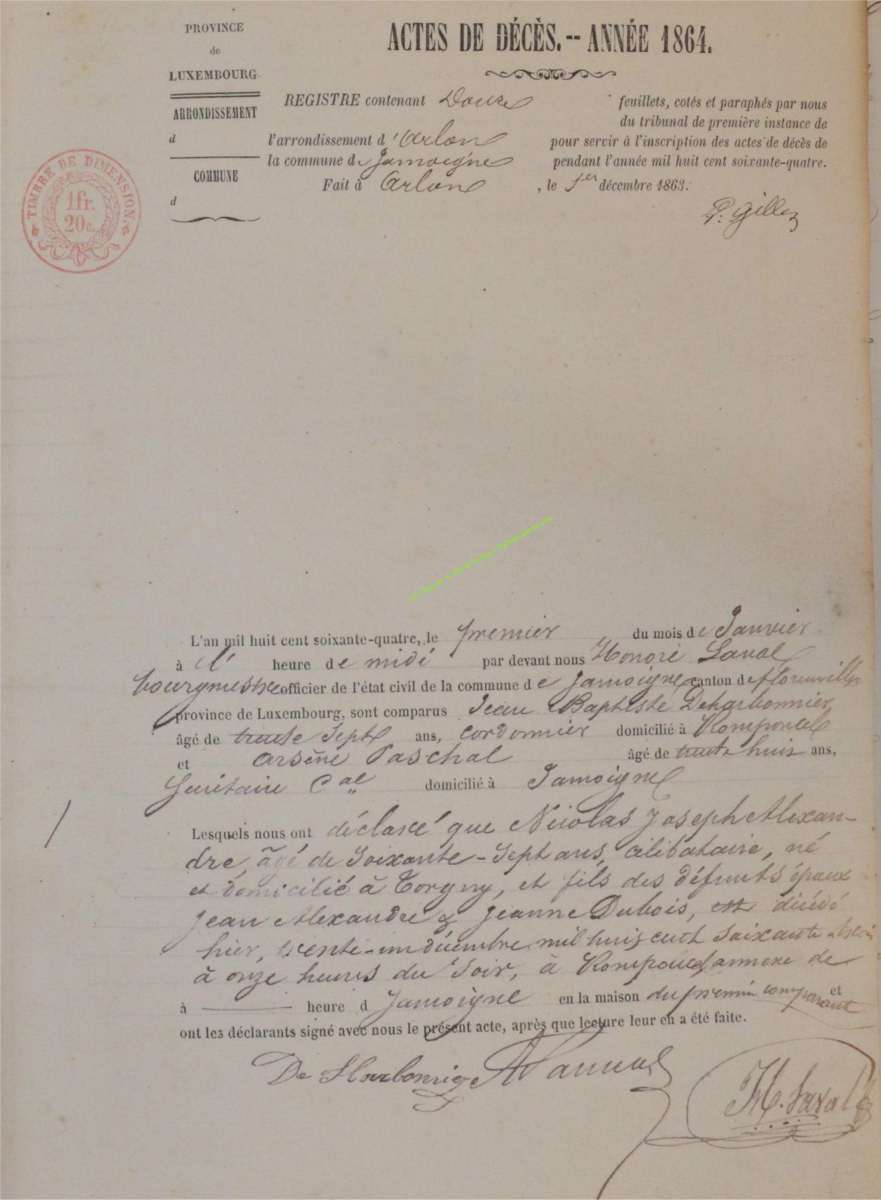 PROVINCE
de
LUXEMBOURG.
ARRONDISSEMENT
d
COMMUNE
d
ACTES DE DÉCÈS. -- ANNÉE 1864.
TIMBRE DE DIMENSION.
1 fr.
20 c.
REGISTRE contenant Douze feuillets, cotés et paraphés par nous
du tribunal de première instance de
l'arrondissement d'Arlon pour servir à l'inscription des actes de décès de
la commune de Jamoigne pendant l'année mil huit cent soixante-quatre.
Fait à Arlon, le 1er décembre 1863.
L'an mil huit cent soixante-quatre, le premier du mois de Janvier
à l' heure de midi par devant nous Honoré Laval
bourgmestre officier de l'état civil de la commune de Jamoigne canton de Florenville
province de Luxembourg, sont comparus Jean Baptiste Deharbonnier
âgé de trente sept ans, cordonnier domicilié à Romponcel
et Arsène Paschal âgé de trente huit ans,
Secrétaire Cal domicilié à Jamoigne
Lesquels nous ont déclaré que Nicolas Joseph Alexan-
dre âgé de Soixante-Sept ans, célibataire, né
et domicilié à Torgny, et fils des défunts époux
Jean Alexandre & Jeanne Dubois, est décédé
hier, trente-un décembre mil huit cent Soixante trois
à onze heures du Soir, à Romponcel annexe de
à heure d Jamoigne en la maison du premier comparant et
ont les déclarants signé avec nous le présent acte, après que lecture leur en a été faite.
H. Laval